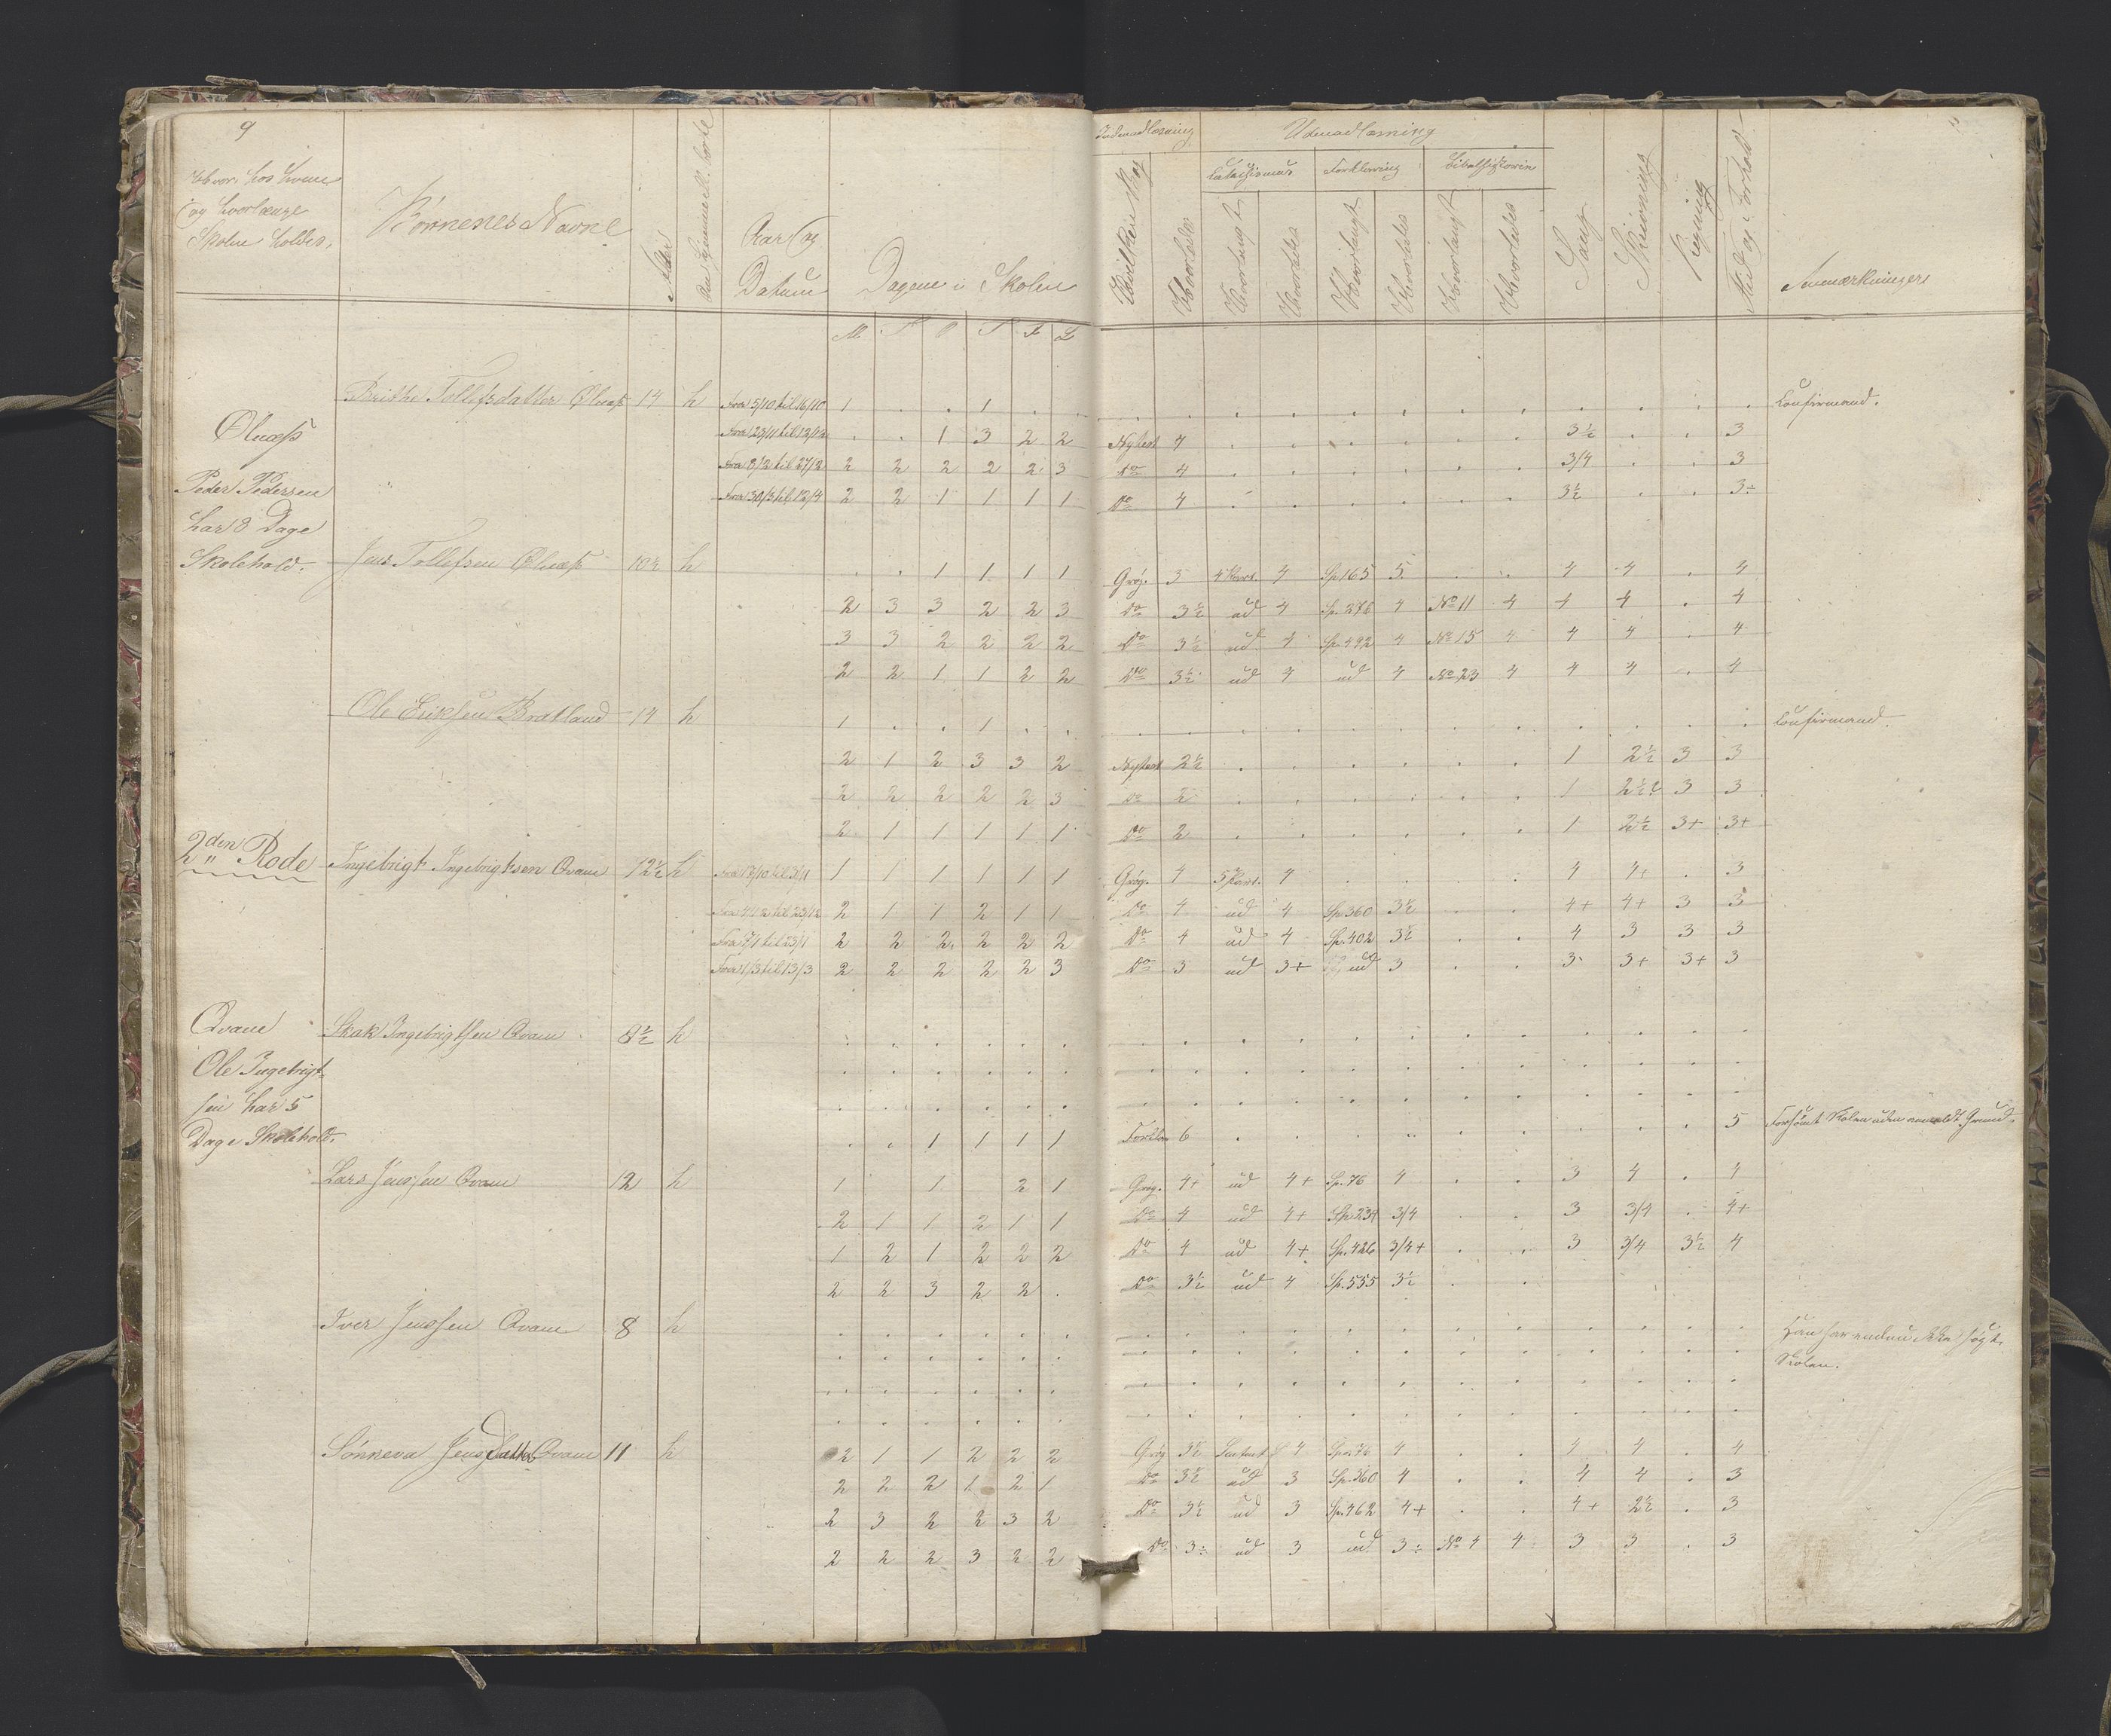 9
Hvor, hos hvem
og hvorlænge
Skolen holdes.
Børnenes Navne
Alder
Aar og
Datum
Dagene i Skolen
Indenadlæsning
Udenadlæsning
Catechismus Forklaring Bibelhistorien
Hvilken Bog
Hvorledes
Hvorlangt
Hvorledes
Hvorlangt
Hvorledes
Hvorlangt
Hvorledes
Sang
Skrivning
Regning
Flid og Forhold
Anmærkninger
M T O T F L
Tollefsdatter Øluæs 14 h Fra 5/10 til 16/10 1 . . 1 . . Confirmand.
Øluæs Fra 23/11 til 12/12 . . 1 3 2 2 Nytest 4 3½ . . 3
Fra 8/2 til 27/2 2 2 2 2 2 3 do 4 3/4 . . 3
Peder Pedersen Fra 30/3 til 12/4 2 2 1 1 1 1 do 4 3½ . . 3÷
har 8 Dage
Skolehold. Jens Tollefsen Øluæs 10½ h . . 1 1 1 1 Grøg. 3 4 Part. 4 Sp. 165 5 . . 4 4 . 4
2 3 3 2 2 3 do 3½ ud 4 Sp. 276 4 No 11 4 4 4 . 4
3 3 2 2 2 2 do 3½ ud 4 Sp. 492 4 No 15 4 4 4 . 4
2 2 1 1 2 2 do 3½ ud 4 ud 4 No 23 4 4 4 . 4
Ole Eriksen Bratland 14 h 1 . . 1 . . Confirmand.
2 1 2 3 3 2 Nytest 2½ 1 2½ 3 3
2 2 2 2 2 3 do 2 1 2½ 3 3
2 1 1 1 1 1 do 2 1 2½ 3+ 3+
2den Rode Ingebrigt Ingebrigtsen Qvam 12½ h Fra 19/10 til 3/11 1 1 1 1 1 1 Grøg. 4 5 Part. 4 . . . . 4 4+ . 3
Fra 4/12 til 23/12 2 1 1 2 1 1 do 4 ud 4 Sp. 360 3½ . . 4+ 4+ 3 3
Fra 7/1 til 23/1 2 2 2 2 2 2 do 4 ud 4 Sp. 402 3½ . . 4 3 3 3
Fra 1/3 til 13/3 2 2 2 2 2 3 do 3 ud 3+ ud 3 . . 3 3+ 3+ 3
Qvam Skak Ingebrigtsen Qvam 8½ h
Ole Ingebrigt-
sen har 5
Dage Skolehold. . . 1 1 1 1 6 5 Forsømt Skolen uden anmeldt Grund.
Lars Jenssen Qvam 12 h 1 1 2 1 Grøg. 4+ ud 4+ Sp. 76 4 . . 3 4 . 4
2 1 1 2 1 1 do 4 ud 4+ Sp. 234 3/4 . . 3 3/4 . 4+
1 2 1 2 2 2 do 4 ud 4+ Sp. 426 3/4+ . . 3 3/4 3½ 4
2 2 3 2 2 . do 3½ ud 4 Sp. 535 3½ . .
Iver Jenssen Qvam 8 h Han har endnu ikke søgt
Skolen.
Sønneva Jensdatter Qvam 11 h 2 1 1 2 2 2 Grøg 3½ 4 Sp. 76 4 . . 4 4 . 4
2 2 2 1 2 1 do 3½ ud 3 Sp. 360 4 . . 4 4 . 3
2 3 2 2 3 2 do 3½ ud 3 Sp. 462 4+ . . 4+ 2½ . 3
2 2 2 3 2 2 do 3÷ ud 3 ud 3÷ No 4 4 3 3 . 3